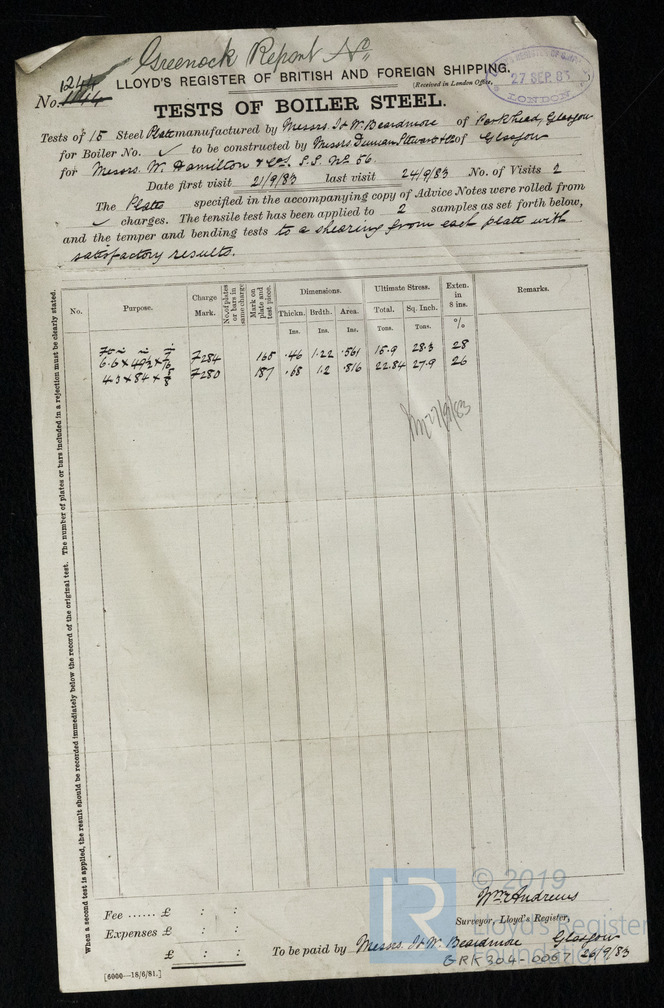 Greenock Report No
No. 1244
LLOYD'S REGISTER OF BRITISH AND FOREIGN SHIPPING.
(Received in London Office,
27 SEP. 83
LONDON
TESTS OF BOILER STEEL.
Tests of 15 Steel Plates manufactured by Messrs. I & W. Beardmore of Parkhead, Glasgow
for Boiler No. ✓ to be constructed by Messrs. Duncan Stewart & Co of Glasgow
for Messrs. W. Hamilton & Co's. S.S. No 56.
Date first visit 21/9/83 last visit 24/9/83 No. of Visits 2
The Plates specified in the accompanying copy of Advice Notes were rolled from
✓ charges. The tensile test has been applied to 2 samples as set forth below,
and the temper and bending tests to a shearing from each plate with
satisfactory results.
No. Purpose. Charge Mark. No. of plates or bars in same charge Mark on plate and test piece. Dimensions. Ultimate Stress. Exten. in 8 ins. Remarks.
Thickn. Brdth. Area. Total. Sq. Inch.
Ins. Ins. Ins. Tons. Tons. %
6.6 × 49½ × 7/16 7284 165 .46 1.22 .561 15.9 28.3 28
4.3 × 84 × 5/8 7280 187 .68 1.2 .816 22.84 27.9 26
27/9/83
When a second test is applied, the result should be recorded immediately below the record of the original test. The number of plates or bars included in a rejection must be clearly stated.
Wm Andrews
Surveyor, Lloyd's Register,
Fee ...... £ : :
Expenses £ : :
£ : :
To be paid by Messrs. I & W. Beardmore Glasgow
26/9/83
GRK304-0067
[6000—18/6/81.]
© 2019
LR
Lloyd's Register
Foundation